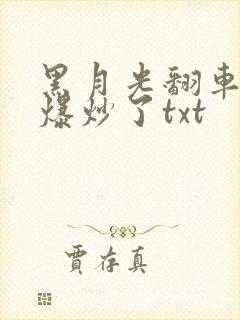 黑月光翻车
爆炒了txt
贾存真